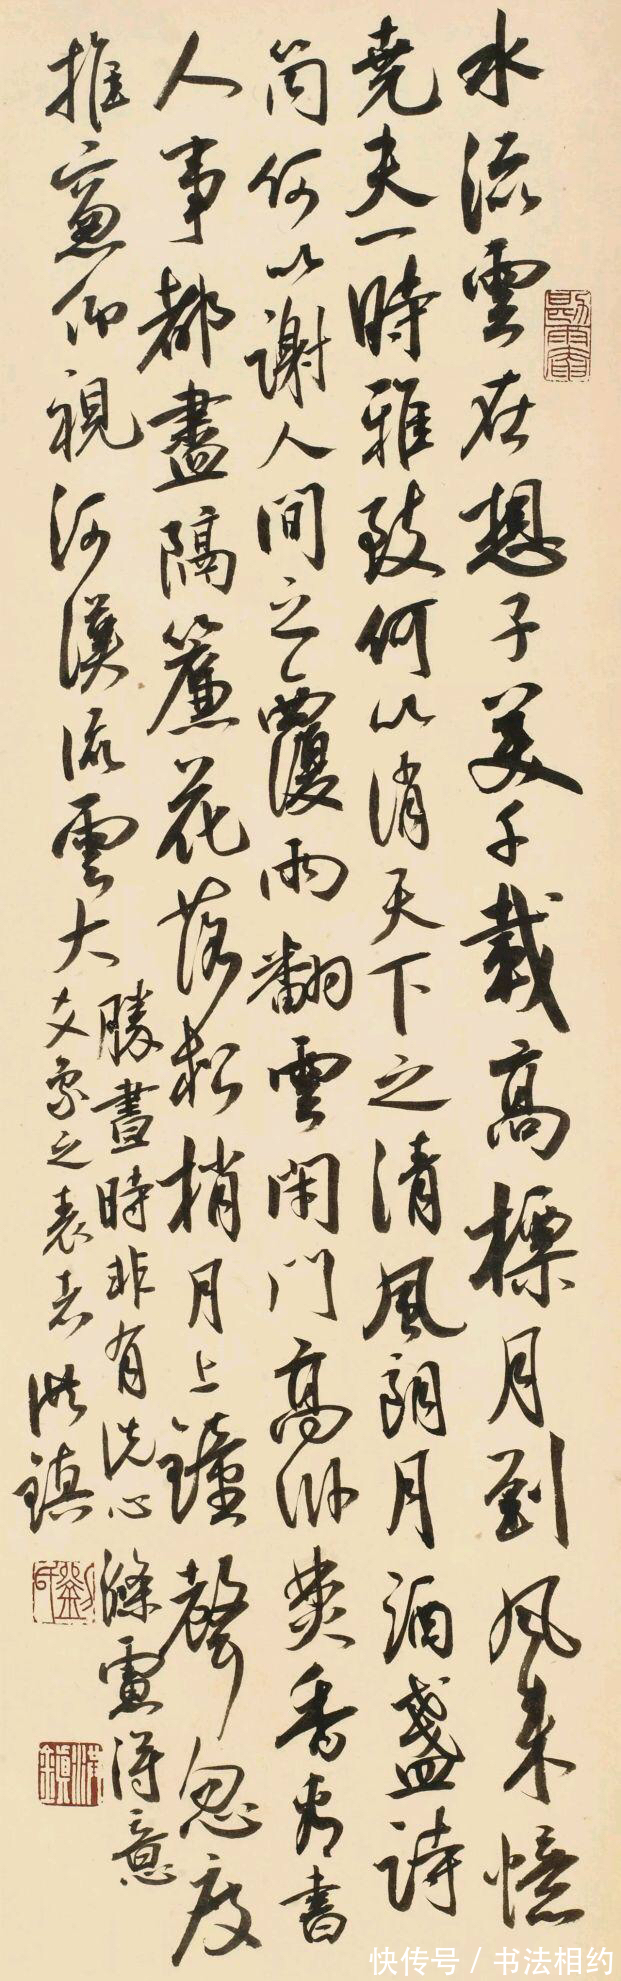 水流雲在想子美千載高標月到風来憶
堯夫一時雅致何以消天下之清風朗月酒盞詩
筒何以謝人間之覆雨翻雲閉門高卧焚香看書
人事都盡隔簾花落松梢月上鐘聲忽度
推窗仰視河漢流雲大
勝晝時非有洗心滌慮得意
爻象之表者
洪鎮
快传号 / 书法相约